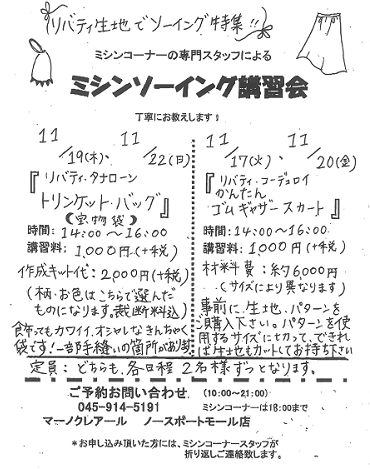 リバティ生地でソーイング特集!!
ミシンコーナーの専門スタッフによる
ミシンソーイング講習会
丁寧にお教えします！
11/19(木)、11/22(日)
『リバティ・タナローン
トリンケット・バッグ』
(宝物袋)
時間: 14:00〜16:00
講習料: 1,000円(+税)
作成キット代: 2,000円(+税)
(柄・お色はこちらで選んだ
ものになります。裁断料込)
飾ってもカワイイ、オシャレなきんちゃく
袋です！一部手縫いの箇所があります
11/17(火)、11/20(金)
『リバティ・コーデュロイ
かんたん
ゴムギャザースカート』
時間: 14:00〜16:00
講習料: 1,000円(+税)
材料費: 約6,000円
(サイズにより異なります)
事前に、生地、パターンを
ご購入下さい。パターンを使
用するサイズに切って、できれ
ば生地もカットしてお持ち下さい
定員: どちらも、各日程 2名様ずつとなります。
ご予約お問い合わせ (10:00〜21:00)
045-914-5191 ミシンコーナーは18:00まで
マーノクレアール ノースポートモール店
*お申し込み頂いた方には、ミシンコーナースタッフが
折り返しご連絡致します。